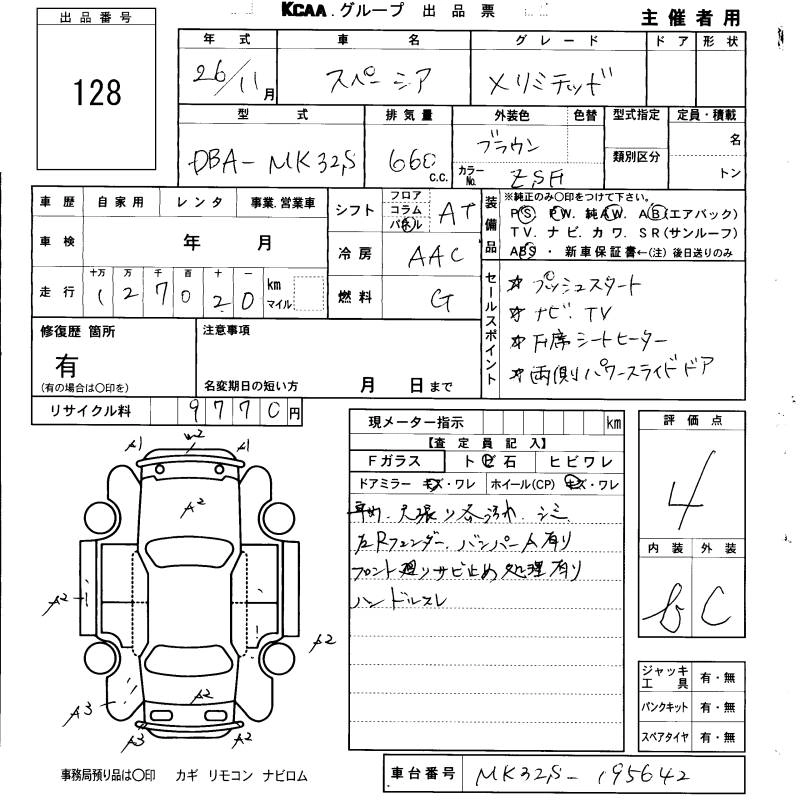 KCAA.グループ 出品票
主催者用
出品番号
128
年式 車名 グレード ドア 形状
26/11月 スペーシア Xリミテッド
型式 排気量 外装色 色替 型式指定 定員・積載
DBA-MK32S 660 c.c. ブラウン 類別区分 名
カラーNo. ZSH トン
車歴 自家用 レンタ 事業.営業車
車検 年 月
走行 十万 万 千 百 十 一 km マイル
1 2 7 0 2 0
シフト フロア コラム パネル AT
冷房 AAC
燃料 G
装備品
※純正のみ〇印をつけて下さい。
PS. PW. 純AW. AB(エアバック)
TV. ナビ. カワ. SR(サンルーフ)
ABS ・ 新車保証書←(注)後日送りのみ
セールスポイント
☆ プッシュスタート
☆ ナビ. TV
☆ 席シートヒーター
☆ 両側パワースライドドア
修復歴 箇所
有
(有の場合は〇印を)
注意事項
名変期日の短い方 月 日まで
リサイクル料 9770円
現メーター指示 km
【査定員記入】
Fガラス トビ石 ヒビワレ
ドアミラー キズ・ワレ ホイール(CP) キズ・ワレ
天張り 汚れ. シミ
フェンダー. バンパーA有り
フロント廻りサビ止め処理有り
ハンドルスレ
評価点
4
内装 外装
b C
ジャッキ工具 有・無
パンクキット 有・無
スペアタイヤ 有・無
A1 W2 A1
A2
A2
A2
A2
A3
A3 A2
事務局預り品は〇印 カギ リモコン ナビロム
車台番号 MK32S-195642